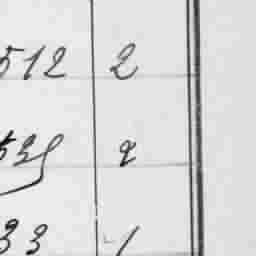 512 2
2
33 1